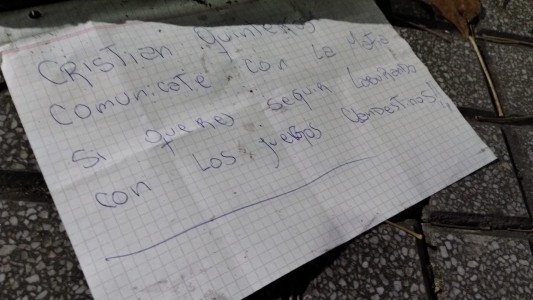 CRISTIAN Quinteros
Comunicate con la Mafia
Si queres seguir laburando
con los juegos clandestinos!,,